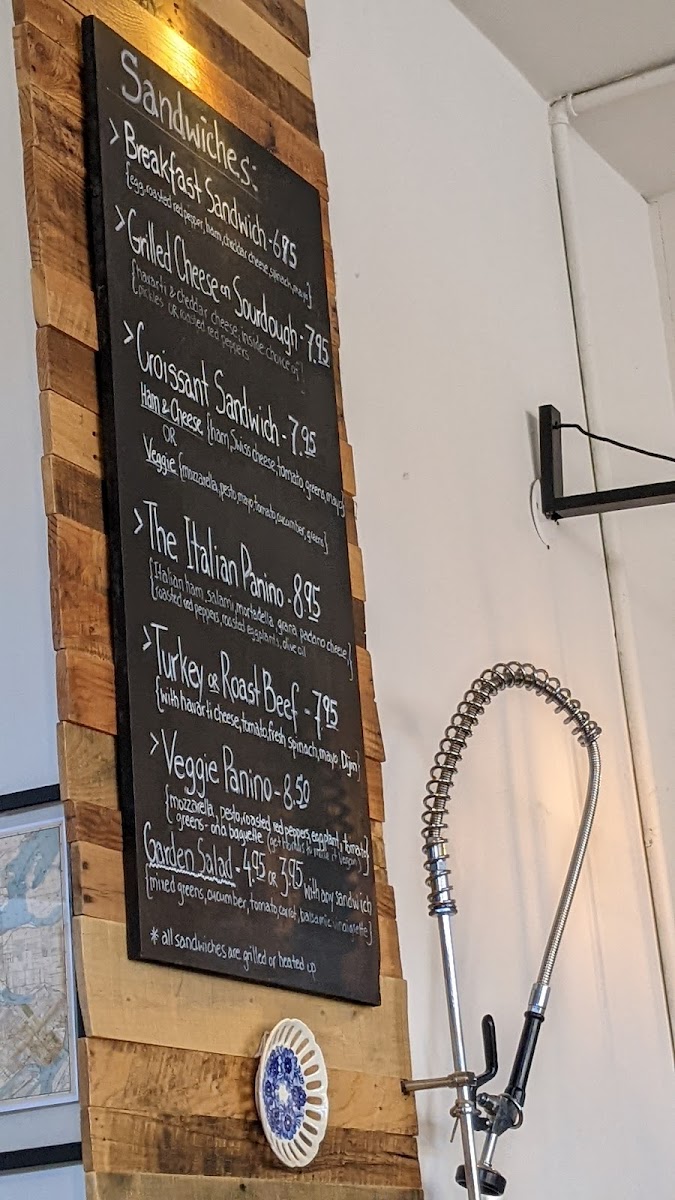 Sandwiches:
> Breakfast Sandwich - 6.95
{egg, roasted red pepper, ham, cheddar cheese, spinach, mayo}
> Grilled Cheese on Sourdough - 7.95
{havarti & cheddar cheese, inside choice of
pickles OR roasted red peppers}
> Croissant Sandwich - 7.95
Ham & Cheese {ham, Swiss cheese, tomato, greens, mayo}
OR
Veggie {mozzarella, pesto, mayo, tomato, cucumber, greens}
> The Italian Panino - 8.95
{Italian ham, salami, mortadella, grana padano cheese,
roasted red peppers, roasted eggplants, olive oil}
> Turkey OR Roast Beef - 7.95
{with havarti cheese, tomato, fresh spinach, mayo, Dijon}
> Veggie Panino - 8.50
{mozzarella, pesto, roasted red peppers, eggplant, tomato,
greens - on a baguette (get hummus to make it vegan)}
Garden Salad - 4.95 OR 3.95 with any sandwich
{mixed greens, cucumber, tomato, carrot, balsamic vinaigrette}
* all sandwiches are grilled or heated up